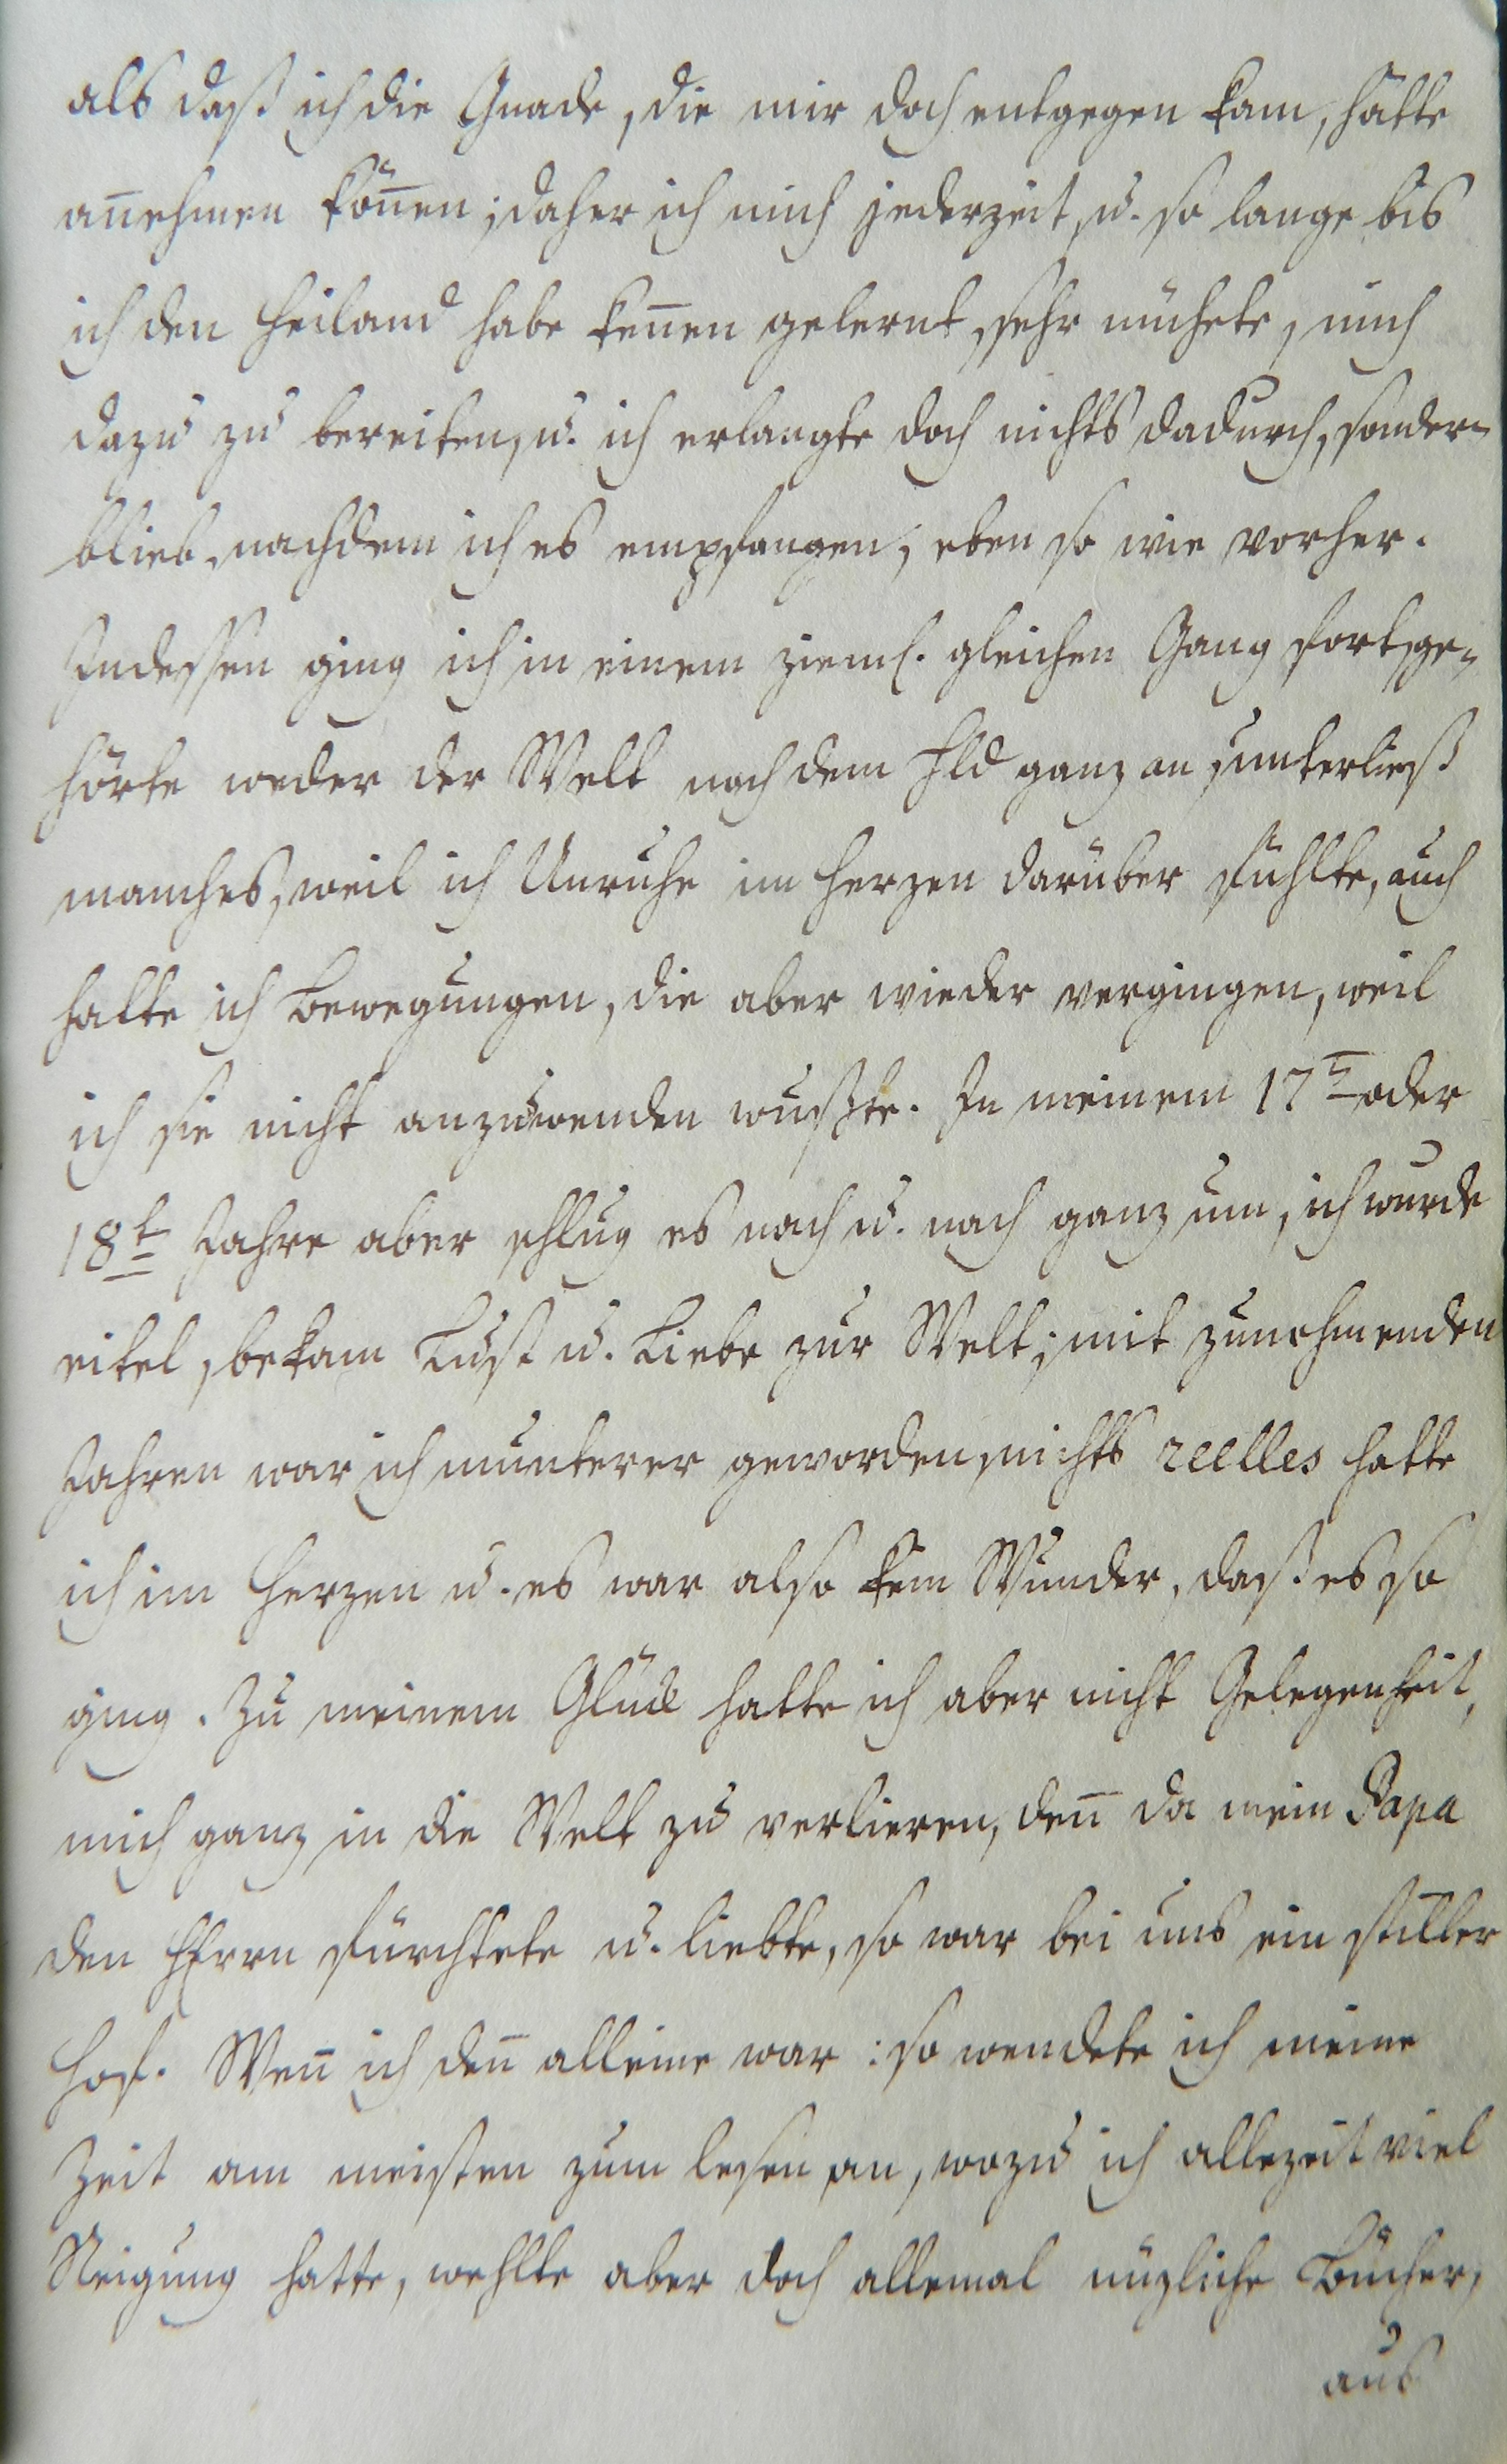 als daß ich die Gnade, die mir doch entgegen kam, hätte
an̄ehmen kön̄en; daher ich mich jederzeit, u. so lange bis
ich den Heiland habe ken̄en gelernt, sehr mühete, mich
dazu zu bereiten, u. ich erlangte doch nichts dadurch, sondern
blieb, nachdem ich es empfangen, eben so wie vorher.
Indessen ging ich in einem zieml. gleichen Gang fort, ge-
hörte weder der Welt noch dem Hld ganz an, unterließ
manches, weil ich Unruhe im Herzen darüber fühlte, auch
hatte ich Bewegungen, die aber wieder vergingen, weil
ich sie nicht anzuwenden wußte. In meinem 17n oder
18t Jahre aber schlug es nach u. nach ganz um, ich wurde
eitel, bekam Lust u. Liebe zur Welt; mit zunehmenden
Jahren war ich munterer geworden, nichts reelles hatte
ich im Herzen u. es war also kein Wunder, daß es so
ging. Zu meinem Glück hatte ich aber nicht Gelegenheit,
mich ganz in die Welt zu verlieren, den̄ da mein Papa
den HErrn fürchtete u. liebte, so war bei uns ein stiller
Hof. Wen̄ ich den̄ alleine war: so wendete ich meine
Zeit am meisten zum lesen an, wozu ich allezeit viel
Neigung hatte, wehlte aber doch allemal nüzliche Bücher,
aus